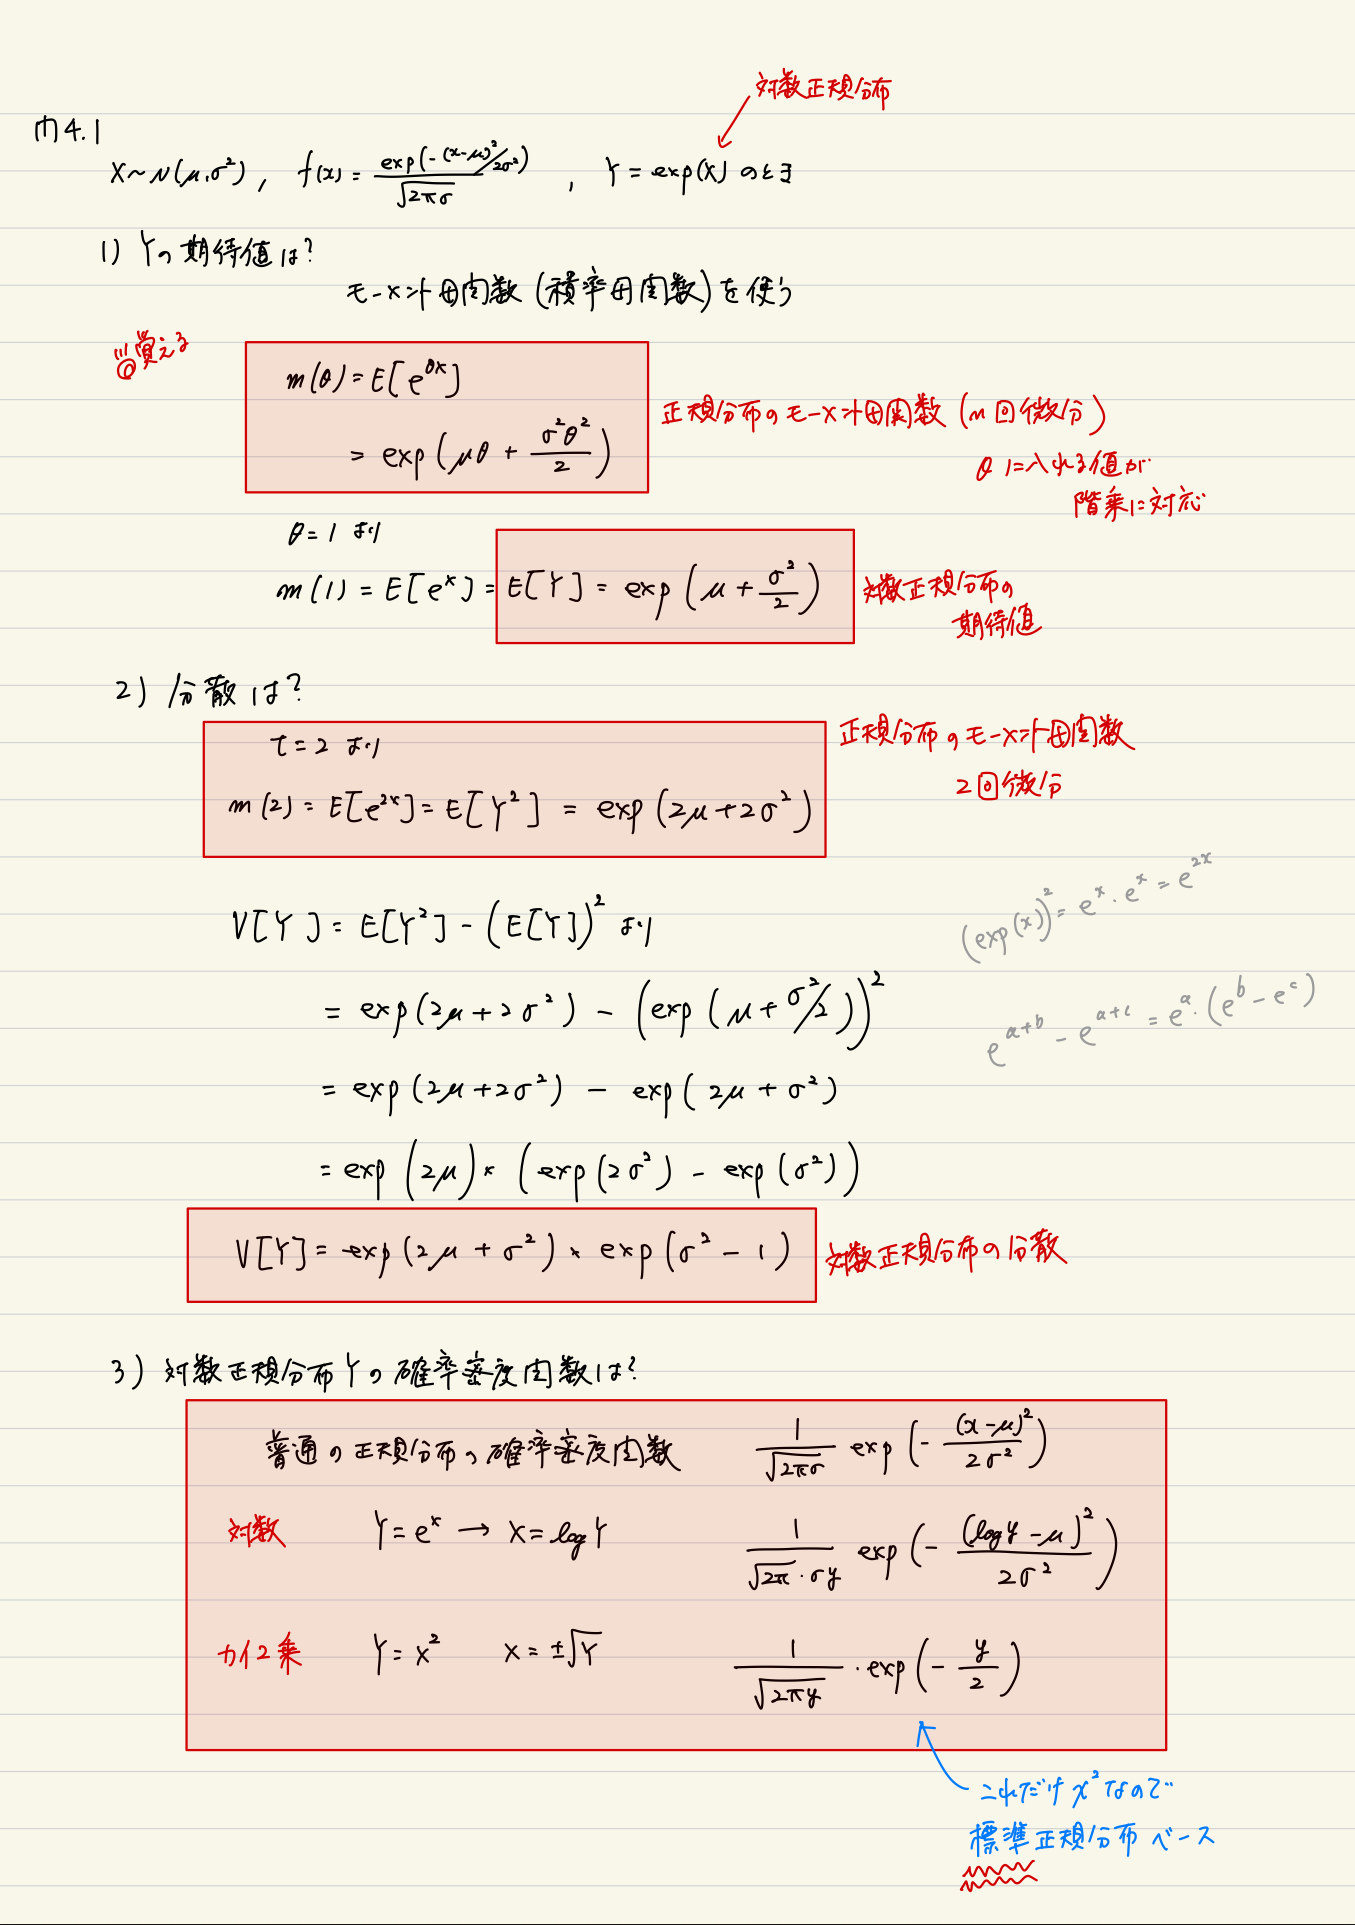 対数正規分布
問4.1
X~N(μ,σ²), f(x)=exp(-(x-μ)²/2σ²)/√2πσ , Y=exp(X) のとき
1) Yの期待値は?
モーメント母関数(積率母関数)を使う
覚える
m(θ)=E[e^θx]
= exp(μθ + σ²θ²/2)
正規分布のモーメント母関数(n回微分)
θに入れる値が
階乗に対応
θ=1 より
m(1)=E[e^x]=E[Y]=exp(μ+σ²/2)
対数正規分布の
期待値
2) 分散は?
t=2 より
m(2)=E[e^2x]=E[Y²] = exp(2μ+2σ²)
正規分布のモーメント母関数
2回微分
V[Y]=E[Y²]-(E[Y])² より
(exp(x))²=e^x・e^x=e^2x
= exp(2μ+2σ²) - (exp(μ+σ²/2))²
e^a+b - e^a+c = e^a・(e^b-e^c)
= exp(2μ+2σ²) - exp(2μ+σ²)
= exp(2μ)×(exp(2σ²) - exp(σ²))
V[Y]=exp(2μ+σ²)×exp(σ²-1)
対数正規分布の分散
3) 対数正規分布Yの確率密度関数は?
普通の正規分布の確率密度関数 1/√2πσ exp(-(x-μ)²/2σ²)
対数 Y=e^x → X=logY 1/√2π・σy exp(-(logy-μ)²/2σ²)
カイ2乗 Y=x² X=±√Y 1/√2πy・exp(-y/2)
これだけx²なので
標準正規分布ベース